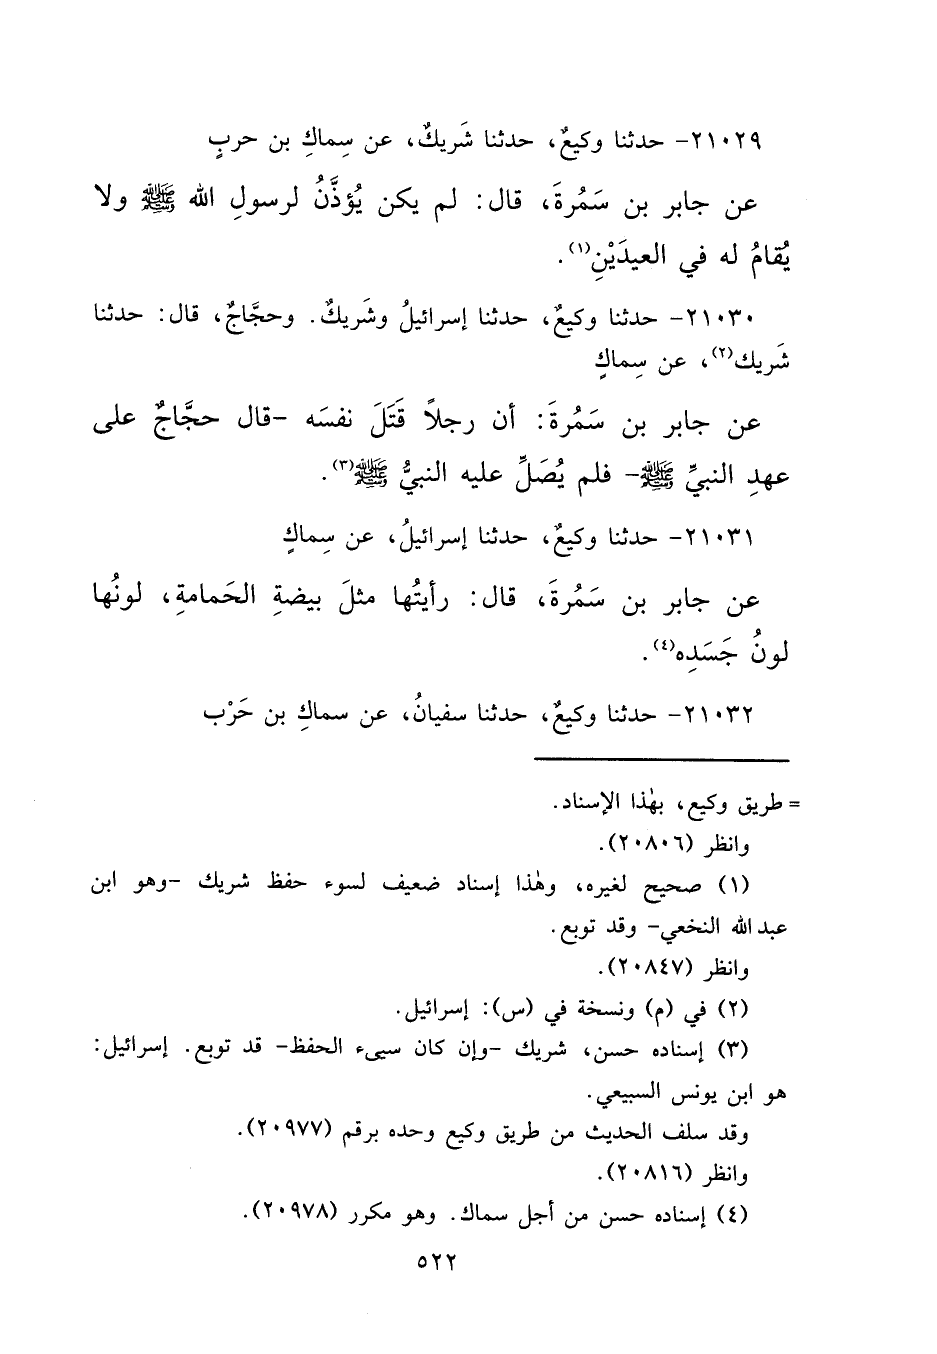 ٢١٠٢٩- حدثنا وكيعٌ، حدثنا شَريكٌ، عن سِماكِ بن حربٍ
عن جابر بن سَمُرةَ، قال: لم يكن يُؤذَّنُ لرسولِ الله ﷺ ولا
يُقامُ له في العيدَيْنِ(١).
٢١٠٣٠- حدثنا وكيعٌ، حدثنا إسرائيلُ وشَريكٌ. وحجَّاجٌ، قال: حدثنا
شَريك(٢)، عن سِماكٍ
عن جابر بن سَمُرةَ: أن رجلاً قَتَلَ نفسَه -قال حجَّاجٌ على
عهدِ النبيِّ ﷺ- فلم يُصَلِّ عليه النبيُّ ﷺ(٣).
٢١٠٣١- حدثنا وكيعٌ، حدثنا إسرائيلُ، عن سِماكٍ
عن جابر بن سَمُرةَ، قال: رأيتُها مثلَ بيضةِ الحَمامةِ، لونُها
لونُ جَسَدِه(٤).
٢١٠٣٢- حدثنا وكيعٌ، حدثنا سفيانُ، عن سماكِ بن حَرْب
= طريق وكيع، بهٰذا الإسناد.
وانظر (٢٠٨٠٦).
(١) صحيح لغيره، وهٰذا إسناد ضعيف لسوء حفظ شريك -وهو ابن
عبد الله النخعي- وقد توبع.
وانظر (٢٠٨٤٧).
(٢) في (م) ونسخة في (س): إسرائيل.
(٣) إسناده حسن، شريك -وإن كان سيىء الحفظ- قد توبع. إسرائيل:
هو ابن يونس السبيعي.
وقد سلف الحديث من طريق وكيع وحده برقم (٢٠٩٧٧).
وانظر (٢٠٨١٦).
(٤) إسناده حسن من أجل سماك. وهو مكرر (٢٠٩٧٨).
٥٢٢